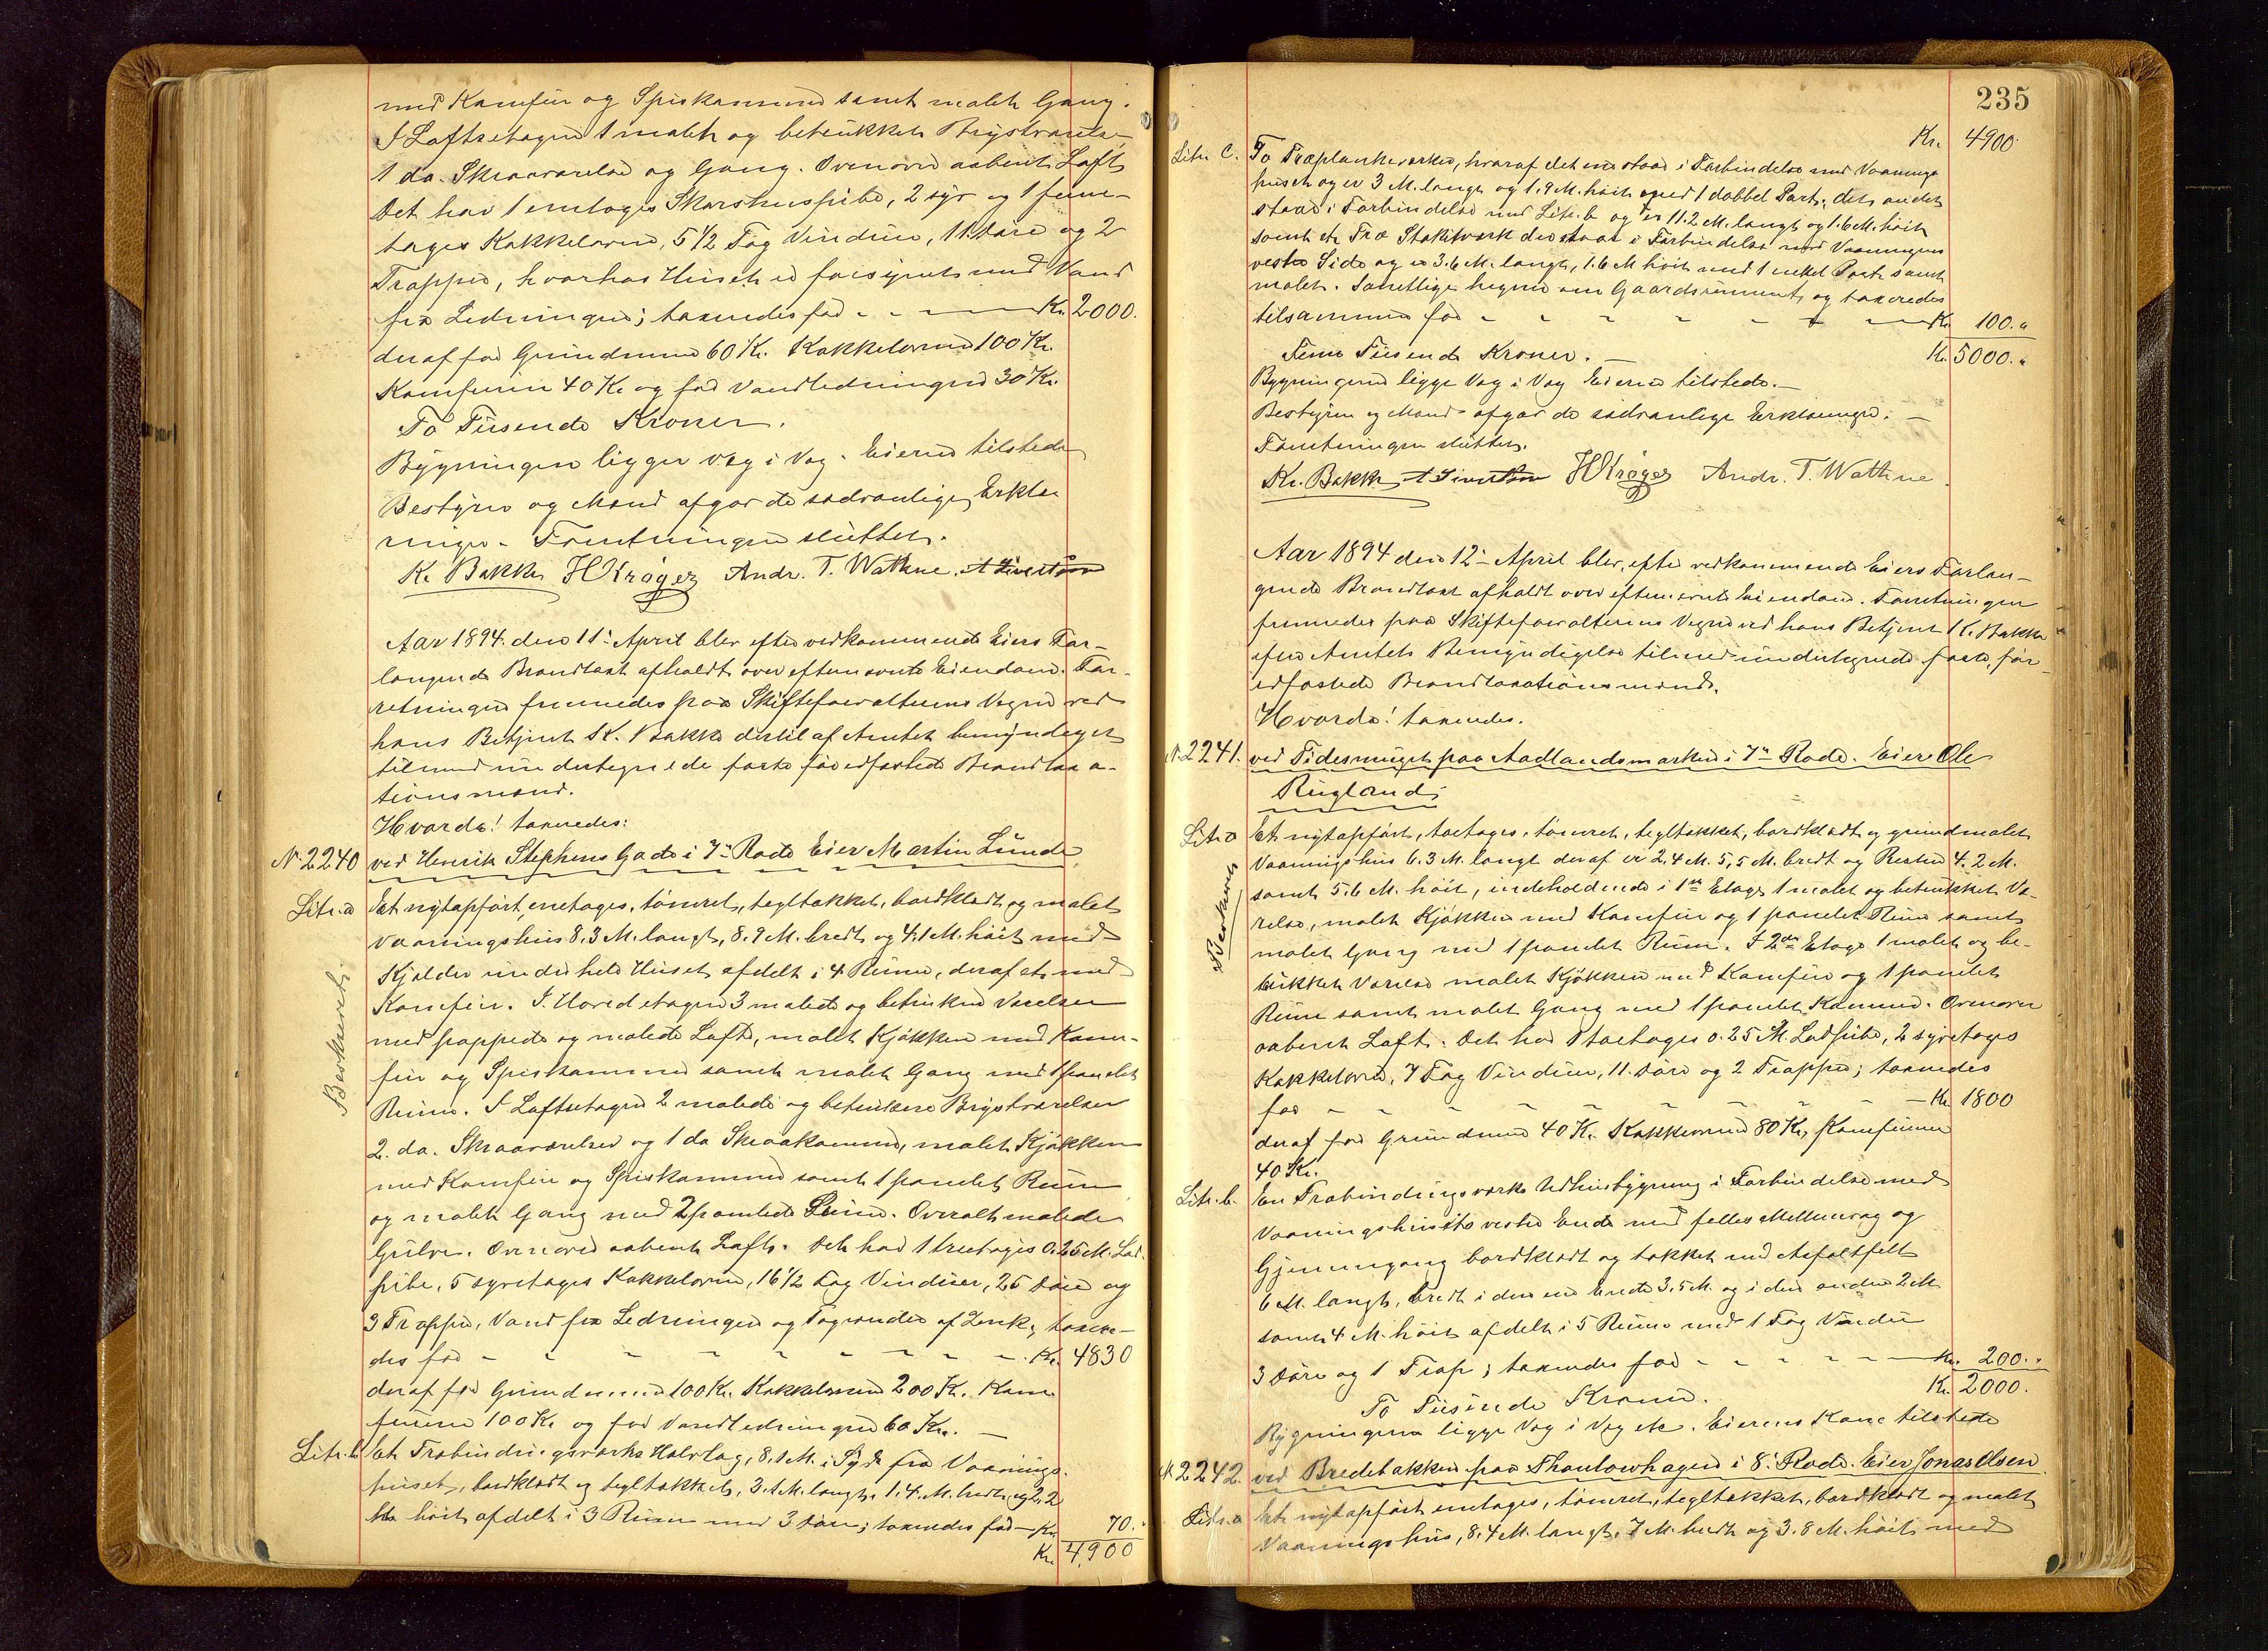 med Komfur og Spiskammer samt malet Gang.
I Loftsetagen 1 malet og betrukket Brystværelse
1 do. Skraaværelse og Gang. Ovenover aabent Loft
Det har 1 enetages Skorstenspibe, 2 syv og 1 fem-
tages Kakkelovne, 5 1/2 Fag Vinduer, 11 Døre og 2
Trapper, hvorhos Huset er forsynet med Vand
fra Ledningen; taxeredes for - - — Kr. 2000.
deraf for Grundmur 60 Kr. Kakkelovne 100 Kr.
Komfuren 40 Kr. og for Vandledningen 30 Kr.
To Tusende Kroner.
Bygningen ligger Væg i Væg. Eieren tilstede
Bestyrer og Mænd afgav de sædvanlige Erklæ
ringer. Forretningen sluttet.
K. Bakke HKrøger Andr. T. Wathne. A Sivertsen
Aar 1894 den 11te April blev efter vedkommende Eiers For-
langende Brandtaxt afholdt over efternævnte Eiendom. For-
retningen fremmedes paa Skifteforvalterens Vegne ved
hans Betjent K. Bakke dertil af Amtet bemyndiget
tilmed undertegnede faste foredfæstede Brandtaxa-
tionsmænd.
Hvorda! taxeredes:
N. 2240 ved Henrik Stephens Gade i 7de Rode Eier Martin Lunde
Litr. a Et nytopført, enetages, tømret, tegltækket, bordklædt og malet
Vaaningshus 8.3 M. langt, 8.9 M. bredt og 4.1 M. høit med
Kjælder under hele Huset afdelt i 4 Rum, deraf et med
Komfur. I Hovedetagen 3 malede og betrukne Værelser
med pappede og malede Lofte, malet Kjøkken med Kom-
fur og Spiskammer samt malet Gang med 1 panelet
Rum. I Loftsetagen 2 malede og betrukne Brystværelser
2 do. Skraaværelser og 1 do Skraakammer, malet Kjøkken
med Komfur og Spiskammer samt 1 panelet Rum
og malet Gang med 2 panelede Rum. Overalt malede
Gulve. Ovenover aabent Loft. Det har 1 tretages 0.25 M. Lod-
pibe, 5 syvetages Kakkelovne, 16 1/2 Fag Vinduer, 25 Døre og
3 Trapper, Vand fra Ledningen og Tagrender af Zenk; taxere-
des for - - - - - - - - Kr. 4830
deraf for Grundmur 100 Kr. Kakkelovne 200 Kr. Kom-
furene 100 Kr. og for Vandledningen 60 Kr. —
Beskrevet.
Litr. b Et Træbindingsværks Halvtag, 8.1 M. i Syd fra Vaanings-
huset, bordklædt og tegltækket, 3.1 M. langt, 1.4 M. bredt og 2.2
M. høit afdelt i 3 Rum med 3 Døre; taxeredes for — Kr. 70.
Kr. 4,900
235
Kr. 4900.
Litr. C. To Træplankeværker, hvoraf det ene staar i Forbindelse med Vaanings
huset og er 3 M. langt og 1.9 M. høit med 1 dobbel Port, det andet
staar i Forbindelse med Litr. b og er 11.2 M. langt og 1.6 M. høit
samt et Træ Stakitværk der staar i Forbindelse med Vaaningens
vestre Side og er 3.6 M. langt, 1.6 M høit med 1 enkel Port samt
malet. Samtlige hegner om Gaardsrummet og taxeredes
tilsammen for - - - - - — Kr. 100. "
Fem Tusende Kroner. — Kr. 5000. "
Bygningerne ligge Væg i Væg Eieren tilstede. —
Bestyrer og Mænd afgav de sædvanlige Erklæringer. —
Forretningen sluttet.
K. Bakke A Sivertsen HKrøger Andr. T. Wathne
Aar 1894 den 12te April blev, efter vedkommende Eiers Forlan-
gende Brandtaxt afholdt over efternævnte Eiendom. Forretningen
fremmedes paa Skifteforvalterens Vegne ved hans Betjent K. Bakke
efter Amtets Bemyndigelse tilmed undertegnede faste, for-
edfæstede Brandtaxationsmænd.
Hvorda! taxeredes.
N. 2241. ved Tidesmuget paa Aadlandsmarken i 7de Rode. Eier Ole
Rugland;
Litr. a Et nytopført, toetages, tømret, tegltækket, bordklædt og grundmalet
Vaaningshus 6.3 M. langt deraf er 2,4 M. 5,5 M. bredt og Resten 4.2 M.
samt 5.6 M. høit, indeholdende i 1ste Etage 1 malet og betrukket Væ-
relse, malet Kjøkken med Komfur og 1 panelet Rum samt
malet Gang med 1 panelet Rum. I 2den Etage 1 malet og be-
trukket Værelse malet Kjøkken med Komfur og 1 panelet
Rum samt malet Gang med 1 panelet Kammer. Ovenover
aabent Loft. Det har 1 toetages 0.25 M. Lodpibe, 2 syvetages
Kakkelovne, 7 Fag Vinduer, 11 Døre og 2 Trapper; taxeredes
for - - - - - - - — Kr. 1800
deraf for Grundmur 40 Kr. Kakkelovne 80 Kr., Komfurene
40 Kr.
Beskrevet
Litr. b. En Træbindingsværks Udhusbygning i Forbindelse med
Vaaningshusets vestre Ende med fælles Mellemvæg og
Gjennemgang bordklædt og tækket med Asfaltfelt
6 M. langt, bredt i den ene Ende 3.5 M. og i den anden 2 M
samt 4 M. høit afdelt i 5 Rum med 1 Fag Vindu
3 Døre og 1 Trap; taxeredes for - - - - — Kr. 200. "
To Tusinde Kroner. Kr. 2000.
Bygningerne ligge Væg i Væg etc. Eierens Kone tilstede
N. 2242. ved Bredebakken paa Thaulowhagen i 8de Rode. Eier Jonas Olsen.
Litr. a Et nytopført enetages, tømret, tegltækket, bordklædt og malet
Vaaningshus, 8.4 M. langt, 7 M. bredt og 3.8 M. høit med